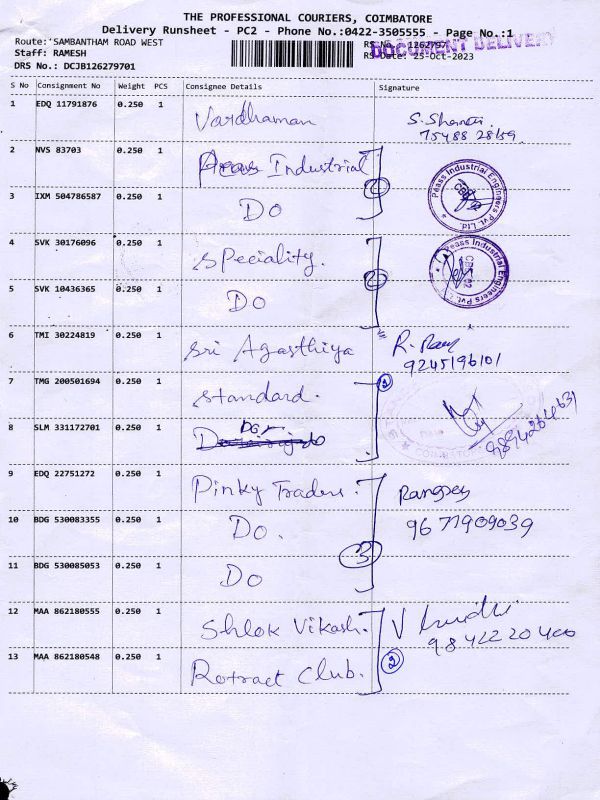 THE PROFESSIONAL COURIERS, COIMBATORE
Delivery Runsheet - PC2 - Phone No.:0422-3505555 - Page No.:1
Route:'SAMBANTHAM ROAD WEST
Staff: RAMESH
DRS No.: DCJB126279701
RS No. 1262797
DOCUMENT DELIVERY
RS Date: 25-Oct-2023
S No Consignment No Weight PCS Consignee Details Signature
1 EDQ 11791876 0.250 1 Vardhaman
75488 28159
2 NVS 83703 0.250 1 Industrial
Peass Industrial Engineers Pvt. Ltd.
3 IXM 504786587 0.250 1 DO
4 SVK 30176096 0.250 1 Speciality.
Peass Industrial Engineers Pvt.
5 SVK 10436365 0.250 1 DO
6 TMI 30224819 0.250 1 Sri Agasthiya R.
9245196101
7 TMG 200501694 0.250 1 Standard. 1
8 SLM 331172701 0.250 1
9894264631
COIMBATORE
9 EDQ 22751272 0.250 1 Pinky Traders.
10 BDG 530083355 0.250 1 DO. 9677909039
11 BDG 530085053 0.250 1 DO 3
12 MAA 862180555 0.250 1 Shlok Vikash. V
98422 20400
13 MAA 862180548 0.250 1 Rotract Club. 2